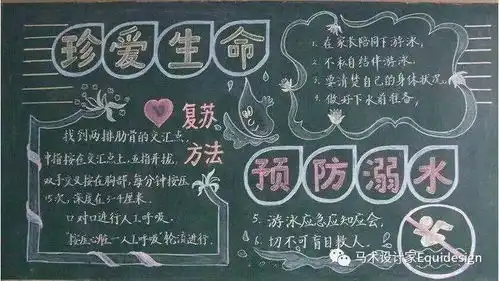 珍爱生命
1. 在家长陪同下游泳,
2. 不私自结伴游泳,
3. 要清楚自己的身体状况,
4. 做好下水前准备,
复苏
方法
找到两排肋骨的交汇点,
中指按在交汇点上,五指并拢,
双手交叉按在胸部,每分钟按压
15次,深度在3-4厘米.
口对口进行人工呼吸.
"按压心脏—人工呼吸"轮流进行.
预防溺水
5. 游泳应急应知应会,
6. 切不可盲目救人.
马术设计家Equidesign